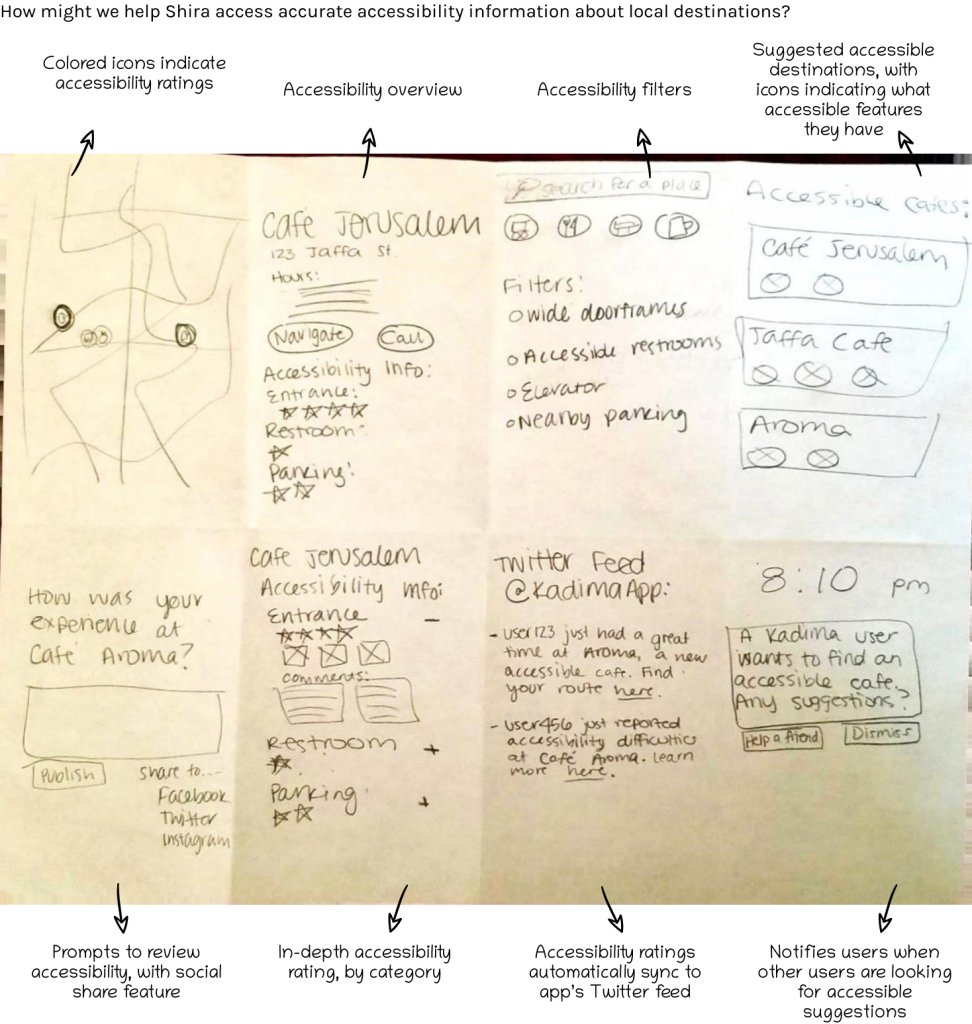 How might we help Shira access accurate accessibility information about local destinations?
Colored icons indicate
accessibility ratings
Accessibility overview
Accessibility filters
Suggested accessible
destinations, with
icons indicating what
accessible features
they have
Café Jerusalem
123 Jaffa St.
Hours:
Navigate
Call
Accessibility Info:
Entrance:
Restroom:
Parking:
Search for a place
Filters:
Wide doorframes
Accessible restrooms
Elevator
Nearby parking
Accessible Cafes:
Café Jerusalem
Jaffa Cafe
Aroma
How was your
experience at
Café Aroma?
Publish
Share to...
Facebook
Twitter
Instagram
Cafe Jerusalem
Accessibility Info:
Entrance -
comments:
Restroom +
Parking: +
Twitter Feed
@KadimaApp:
- User123 just had a great
time at Aroma, a new
accessible cafe. Find
your route here.
- User456 just reported
accessibility difficulties
at Café Aroma. Learn
more here.
8:10 pm
A Kadima user
wants to find an
accessible cafe.
Any suggestions?
Help a friend
Dismiss
Prompts to review
accessibility, with social
share feature
In-depth accessibility
rating, by category
Accessibility ratings
automatically sync to
app's Twitter feed
Notifies users when
other users are looking
for accessible
suggestions